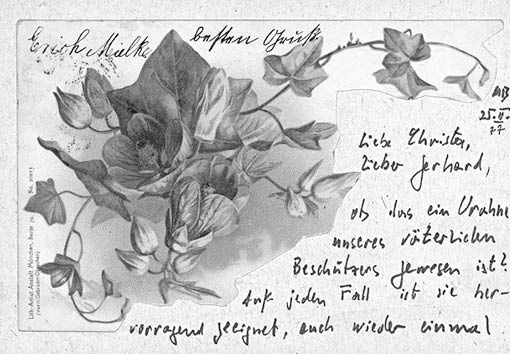 Erich Mielke besten Gruß.
MB
25.II.
77
Liebe Christa,
Lieber Gerhard,
ob das ein Urahne
unseres väterlichen
Beschützers gewesen ist?
Auf jeden Fall ist sie her-
vorragend geeignet, euch wieder einmal
Lith.-Artist. Anstalt München,
(vorm. Gebrüder Obpacher)
No. 20013